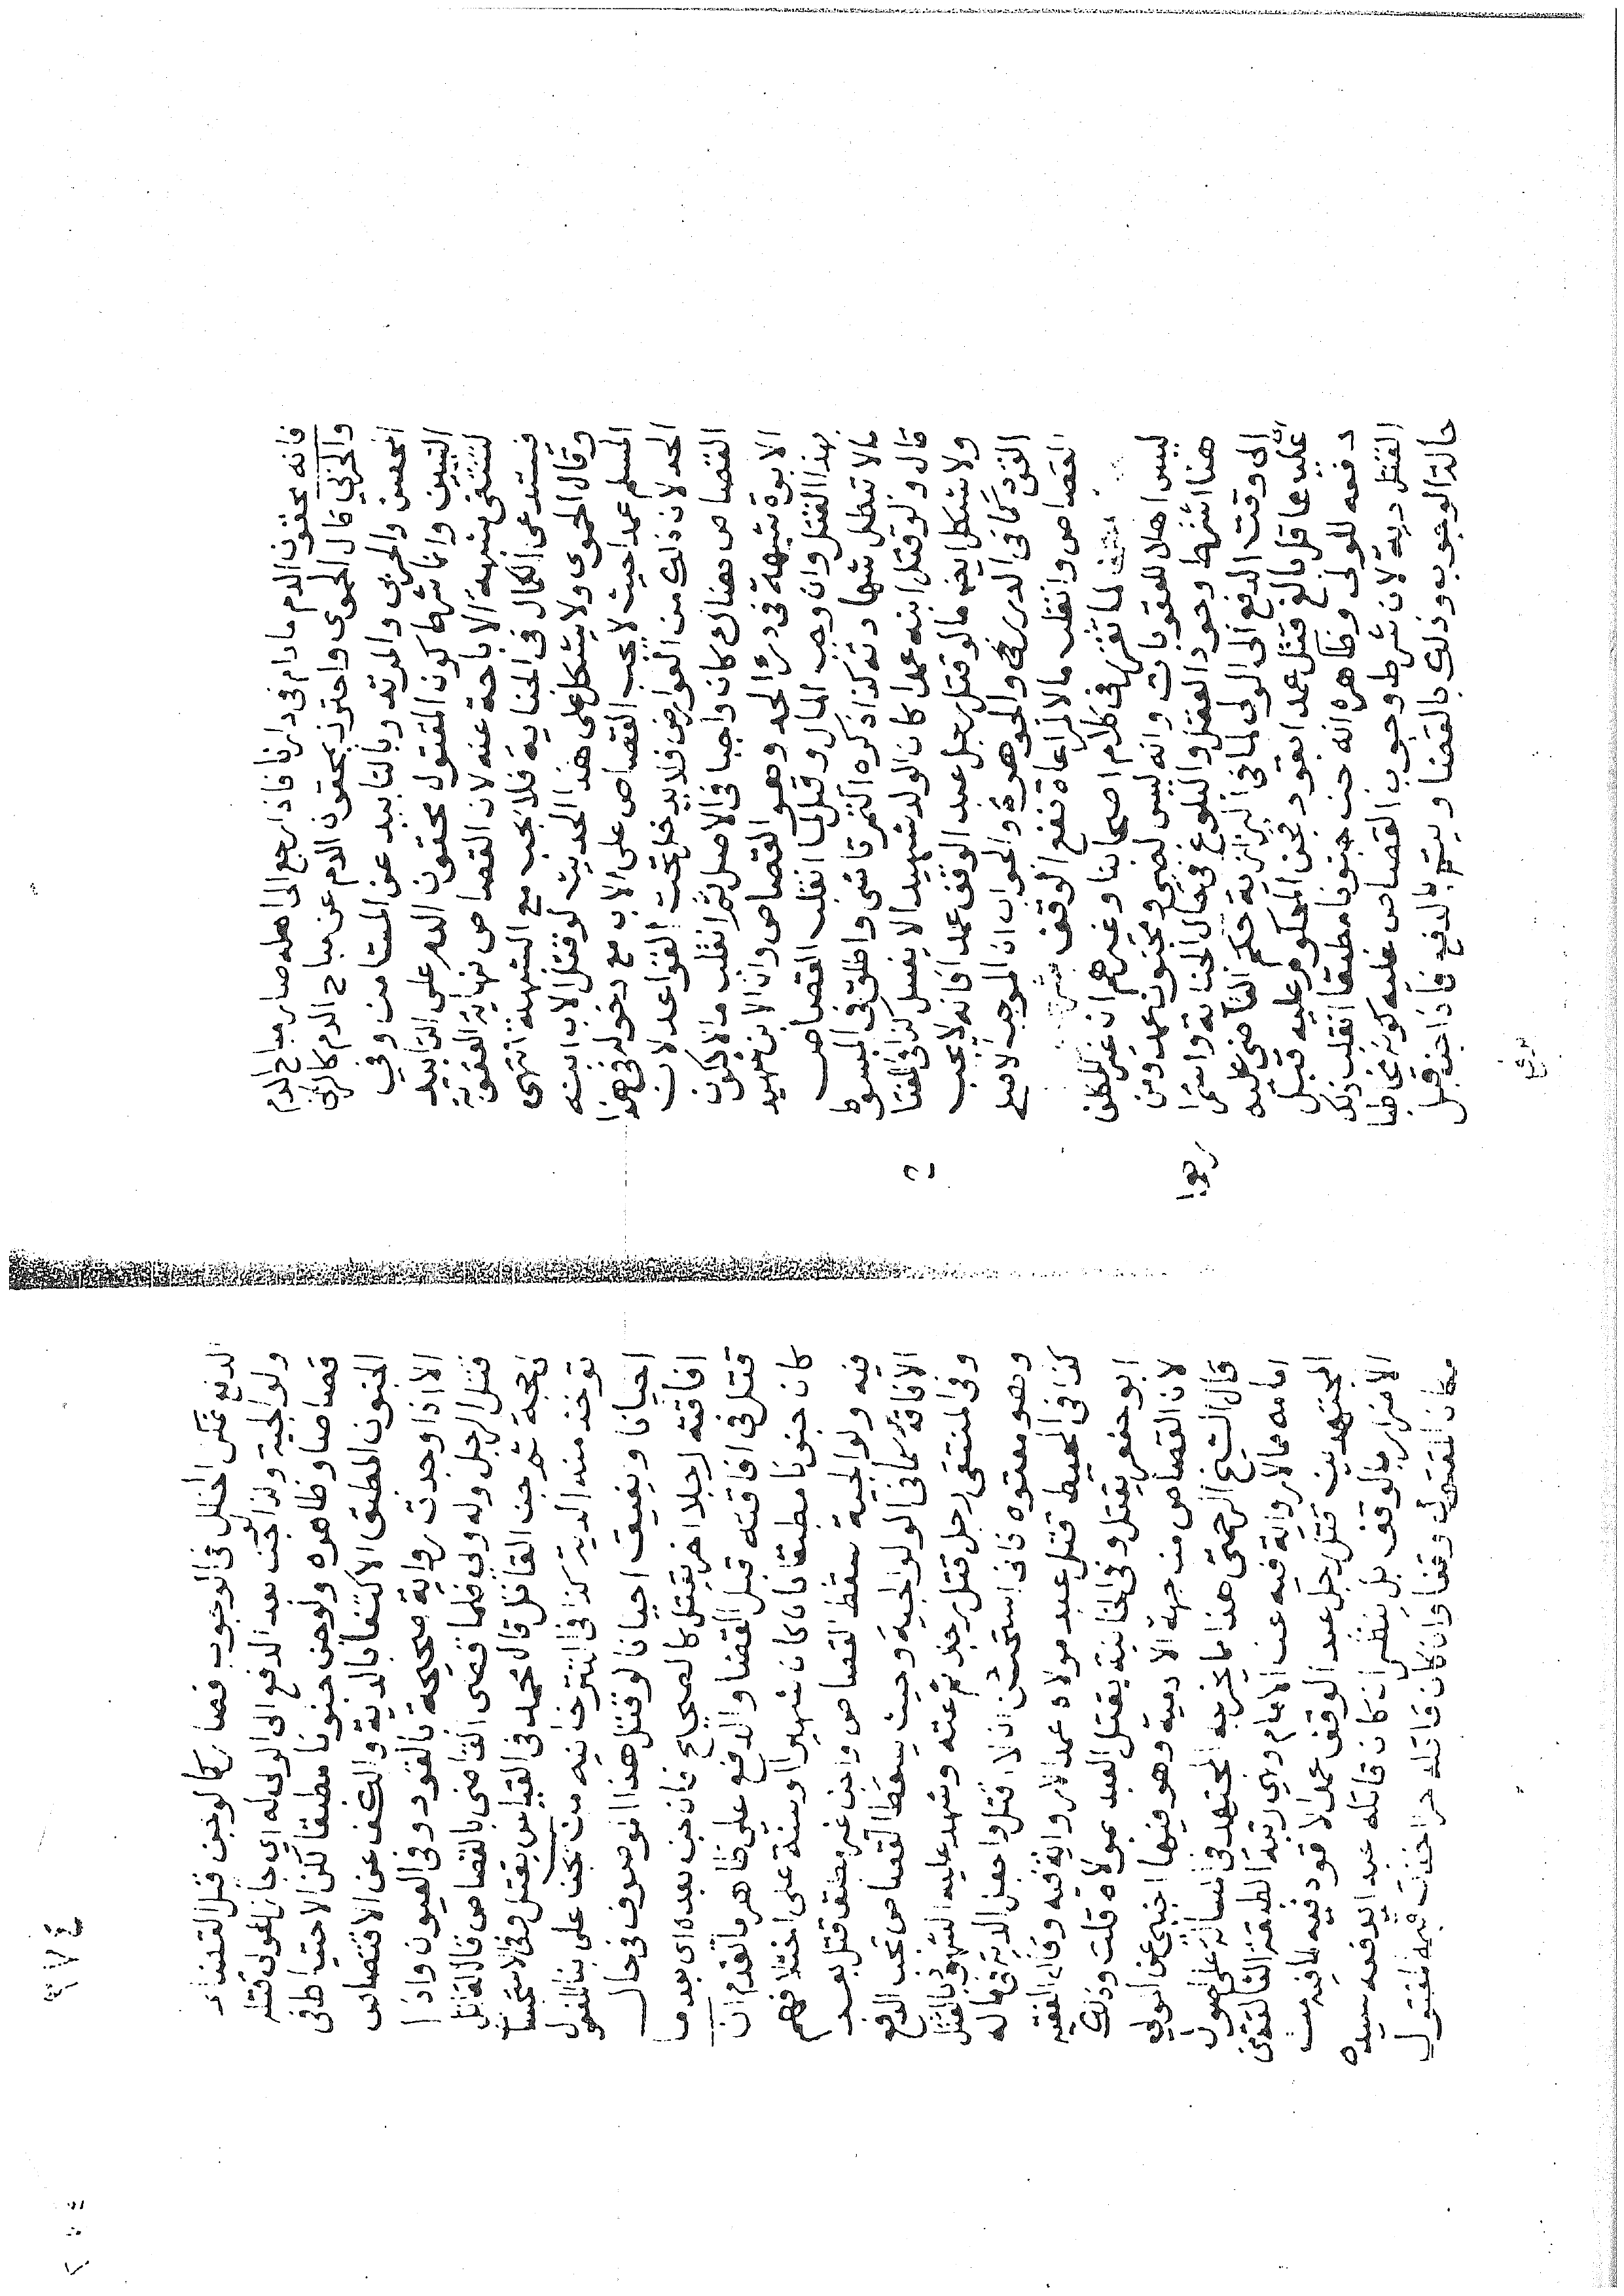 فانه محقون الدم مادام في دارنا فاذا رجع الى اهله صار مباح الدم
والحربي قال الحموي واحترز بمحقون الدم عن مباح الدم كالزاني
المحصن والحربي والمرتد وبالتابيد عن المستامن وفي
التبيين وانما شرط كون المقتول محقون الدم على التابيد
لتنتفي شبهة الاباحة عنه لان القصاص نهاية العقوبة
فيستدعي الكمال في الجناية فلا يجب مع الشبهة انتهى
وقال الحموي ولا يشكل على هذا الحديث لو قتل الاب ابنه
المسلم عمدا حيث لا يجب القصاص على الاب مع دخوله في هذا
الحد لان ذلك من العوارض فلا يدخل تحت القواعد لان
القصاص هناك كان واجبا في الاصل ثم انقلب مالا لكون
الابوة شبهة في درء الحد وهو القصاص وان الابن شهيد
بهذا القتل وان وجب المال وقيل لما انقلب القصاص
مالا تبطل شهادته كذا ذكره التمرتاشي واطلق في المبسوط
قال ولو قتل ابنه عمدا كان الولد شهيدا لا يغسل كذا في الفتا
ولا يشكل ايضا ما لو قتل رجل عبد الوقف عمدا فانه لا يجب
القود كما في الدرر والجوهرة والجواب ان الموجب الاصلي
القصاص وانقلب مالا لمراعاة نفع الوقف
لما تقرر في كلام اصحابنا وغيرهم ان غير المكلف
ليس اهلا للعقوبات وانه ليس لصبي ومجنون عمد ومن
هنا اشترط وجود العقل والبلوغ في حال الجناية واستمرا
رهما
الى وقت الدفع الى الولي لما في البزازية حكم القاضي عليه
عليه عاقل بالغ قتل عمدا بقود فجن المحكوم عليه قبل
دفعه للولي وظاهره انه جن جنونا مطبقا انقلب ذلك
القتل دية لان شرط وجوب القصاص عليه كونه مخاطبا
حالة الوجوب وذلك بالقضا ويتم بالدفع فاذا جن قبل
الدفع
٢٧٤
الدفع تمكن الخلل في الوجوب فصار كما لو جن قبل القضاء
ولوالجية ولذا لو جن بعد الدفع الى الولي له اي جاز للولي قتله
قصاصا وظاهره ولو جن جنونا مطبقا لكن الاحتياط في
الجنون المطبق الاكتفا بالدية والكف عن الاقتصاص
الا اذا وجدت رواية صحيحة بالقود وفي العيون واذا
قتل الرجل وله ولي فلما قضى القاضي بالقصاص قال القاتل
لي حجة ثم جن القاتل قال محمد في القياس يقتل وفي الاستحسان
توخذ منه الدية كذا في التترخانيه من يجن على بنا المفعول
احيانا ويفيق احيانا لو قتل هذا الموصوف في حال
افاقته رجلا اخر يقتل كالصحيح فان جن بعده اي بعد ما
قتل في افاقته قبل القضا والدفع على ظاهر ما تقدم ان
كان جنونا مطبقا بان كان شهرا او سنة على اختلافهم
فيه ولوالجية سقط القصاص وان غير مطبق قتل بعد
الافاقة كما في الولوالجية وحيث يسقط القصاص تجب الدفع
وفي المنتقى رجل قتل رجلا ثم عته وشهد عليه الشهود بالقتل
وهو معتوه فاني استحسن ان لا اقتل واجعل الدية في ماله
كذا في المحيط قتل عبد مولاه عمدا لا رواية فيه وقال الفقيه
ابو جعفر يقتل وفي الخانية يقتل العبد بمولاه قلت وذلك
لان القصاص من جهة الادمية وهو فيها اجنبي عن المولى
قال الشيخ الرحمتي هذا مما يخرجه المجتهد في المسائل على اصول
امامه مما لا رواية فيه عن الامام وهي رتبة الطبقة الثالثة من
المجتهدين قتل رجل عبد الوقف عمدا لا قود فيه لما فيه من
الاضرار بالوقف بل ينظر ان كان قاتله عبدا يدفعه سيده
مكان المقتول وقفا وان كان قاتله حرا اخذت قيمة المقتول